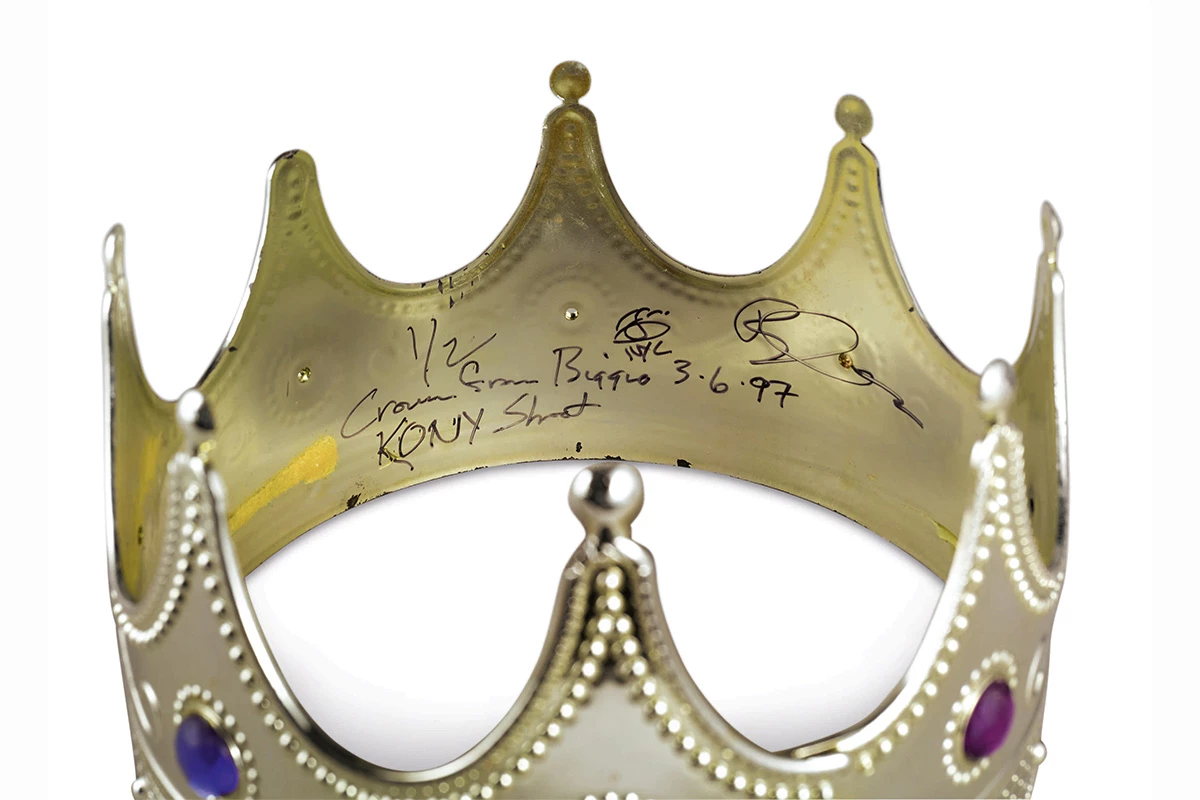 1/2
NYC
Crown From Biggie 3.6.97
KONY Shoot